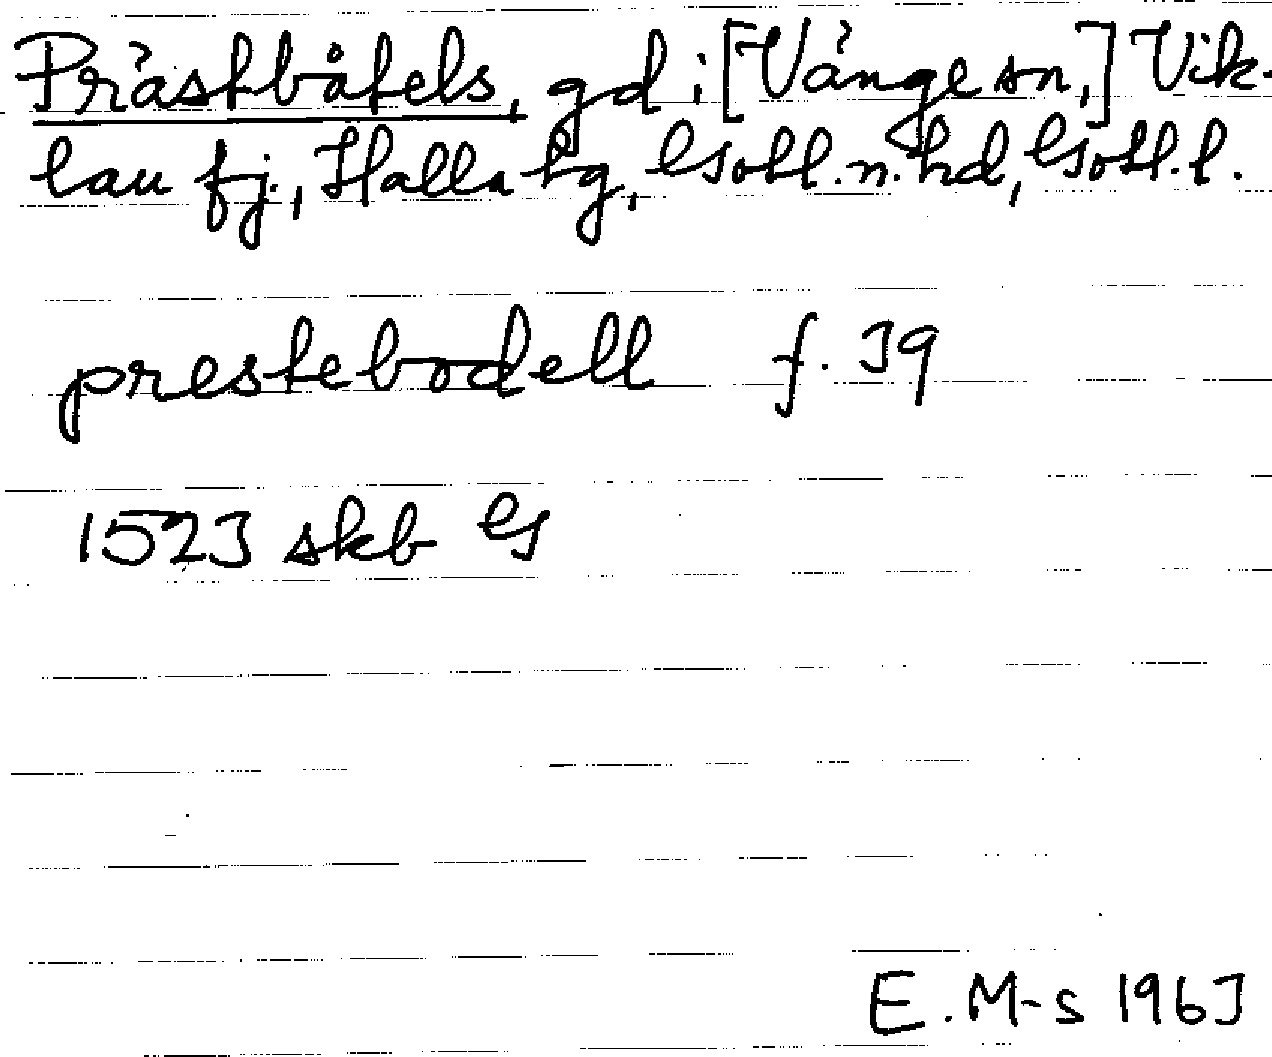 Prästbåtels, gd i [Vänge sn,] Vik-
lau fj., Halla tg, Gotl. n. hd, Gotl. l.
prestebodell f. 39
1523 skb G
E. M-s 1963